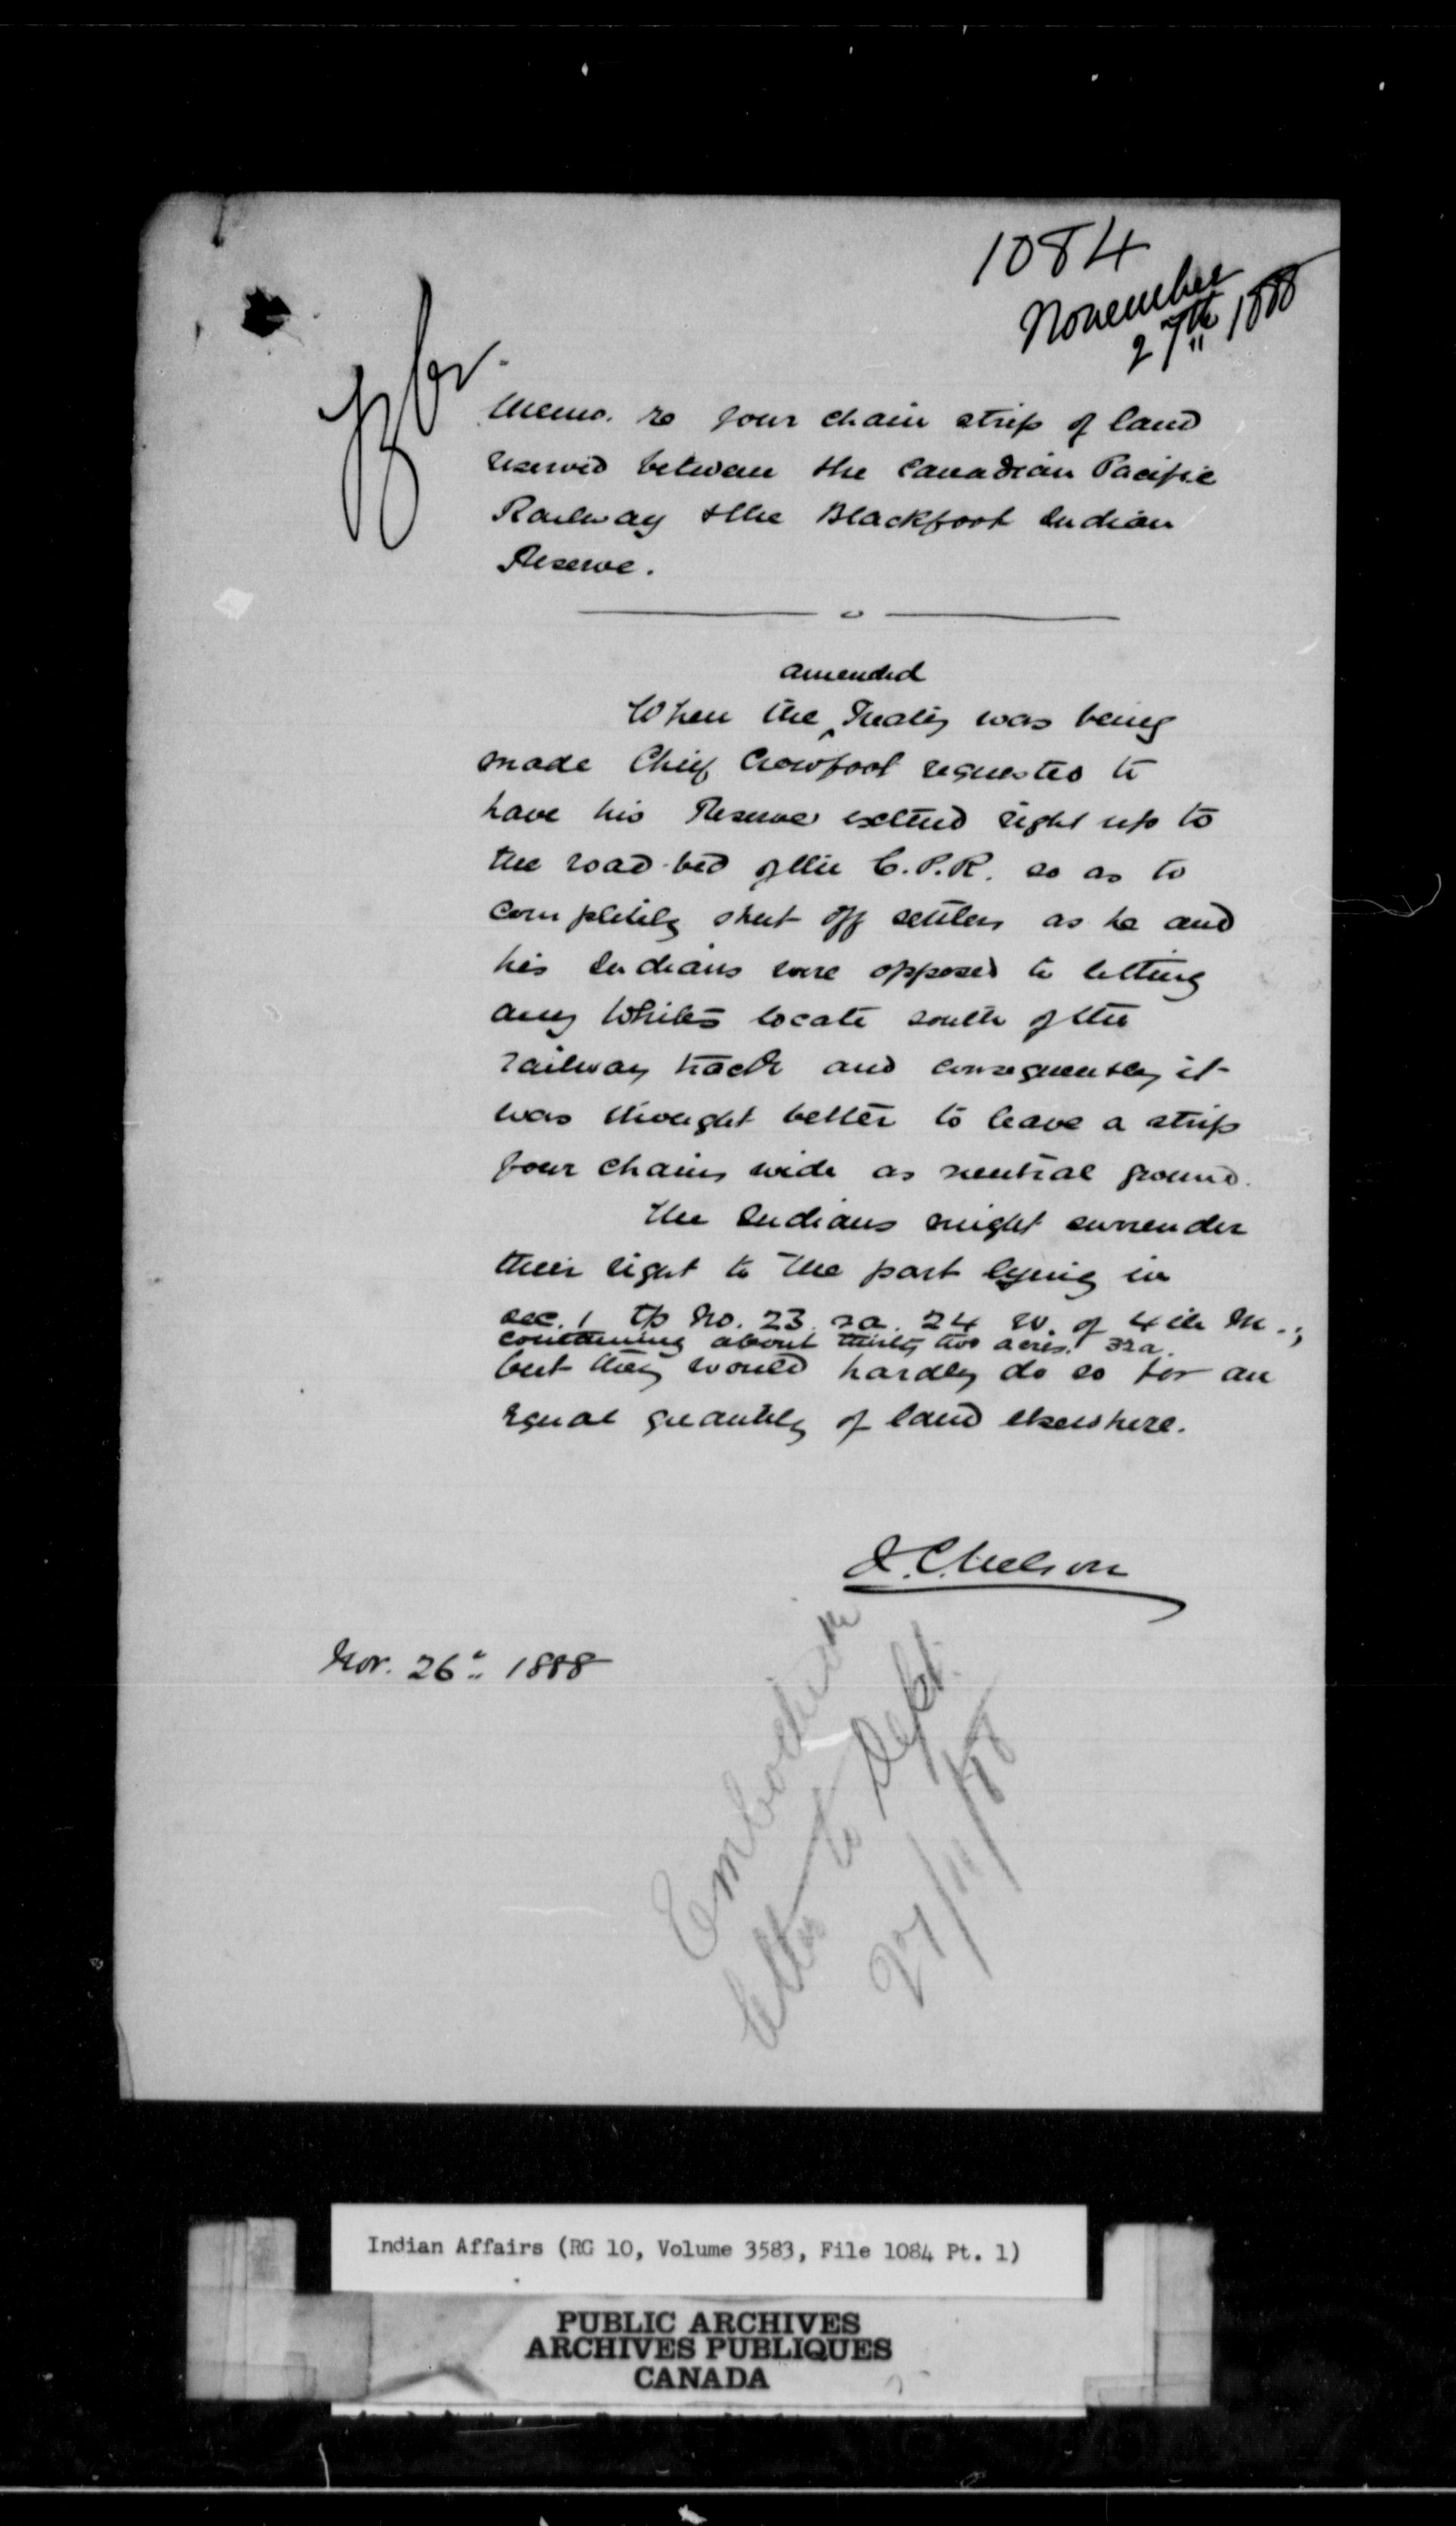 1084
November
27th 1888
Memo. re four chain strip of land
reserved between the Canadian Pacific
Railway & the Blackfoot Indian
Reserve.
amended
When the Treaty was being
made Chief Crowfoot requested to
have his Reserve extend right up to
the road-bed of the C.P.R. so as to
completely shut off settlers as he and
his Indians were opposed to letting
any Whites locate south of the
railway track and consequently it
was thought better to leave a strip
four chains wide as neutral ground.
The Indians might surrender
their right to the part lying in
sec. 1 Tp No. 23 ra. 24 W. of 4th M.;
containing about thirty two acres. 32a.
but they would hardly do so for an
equal quantity of land elsewhere.
J.C. Nelson
Nov. 26th 1888
Embodied in
letter to Dept.
27/11/88
Indian Affairs (RG 10, Volume 3583, File 1084 Pt. 1)
PUBLIC ARCHIVES
ARCHIVES PUBLIQUES
CANADA